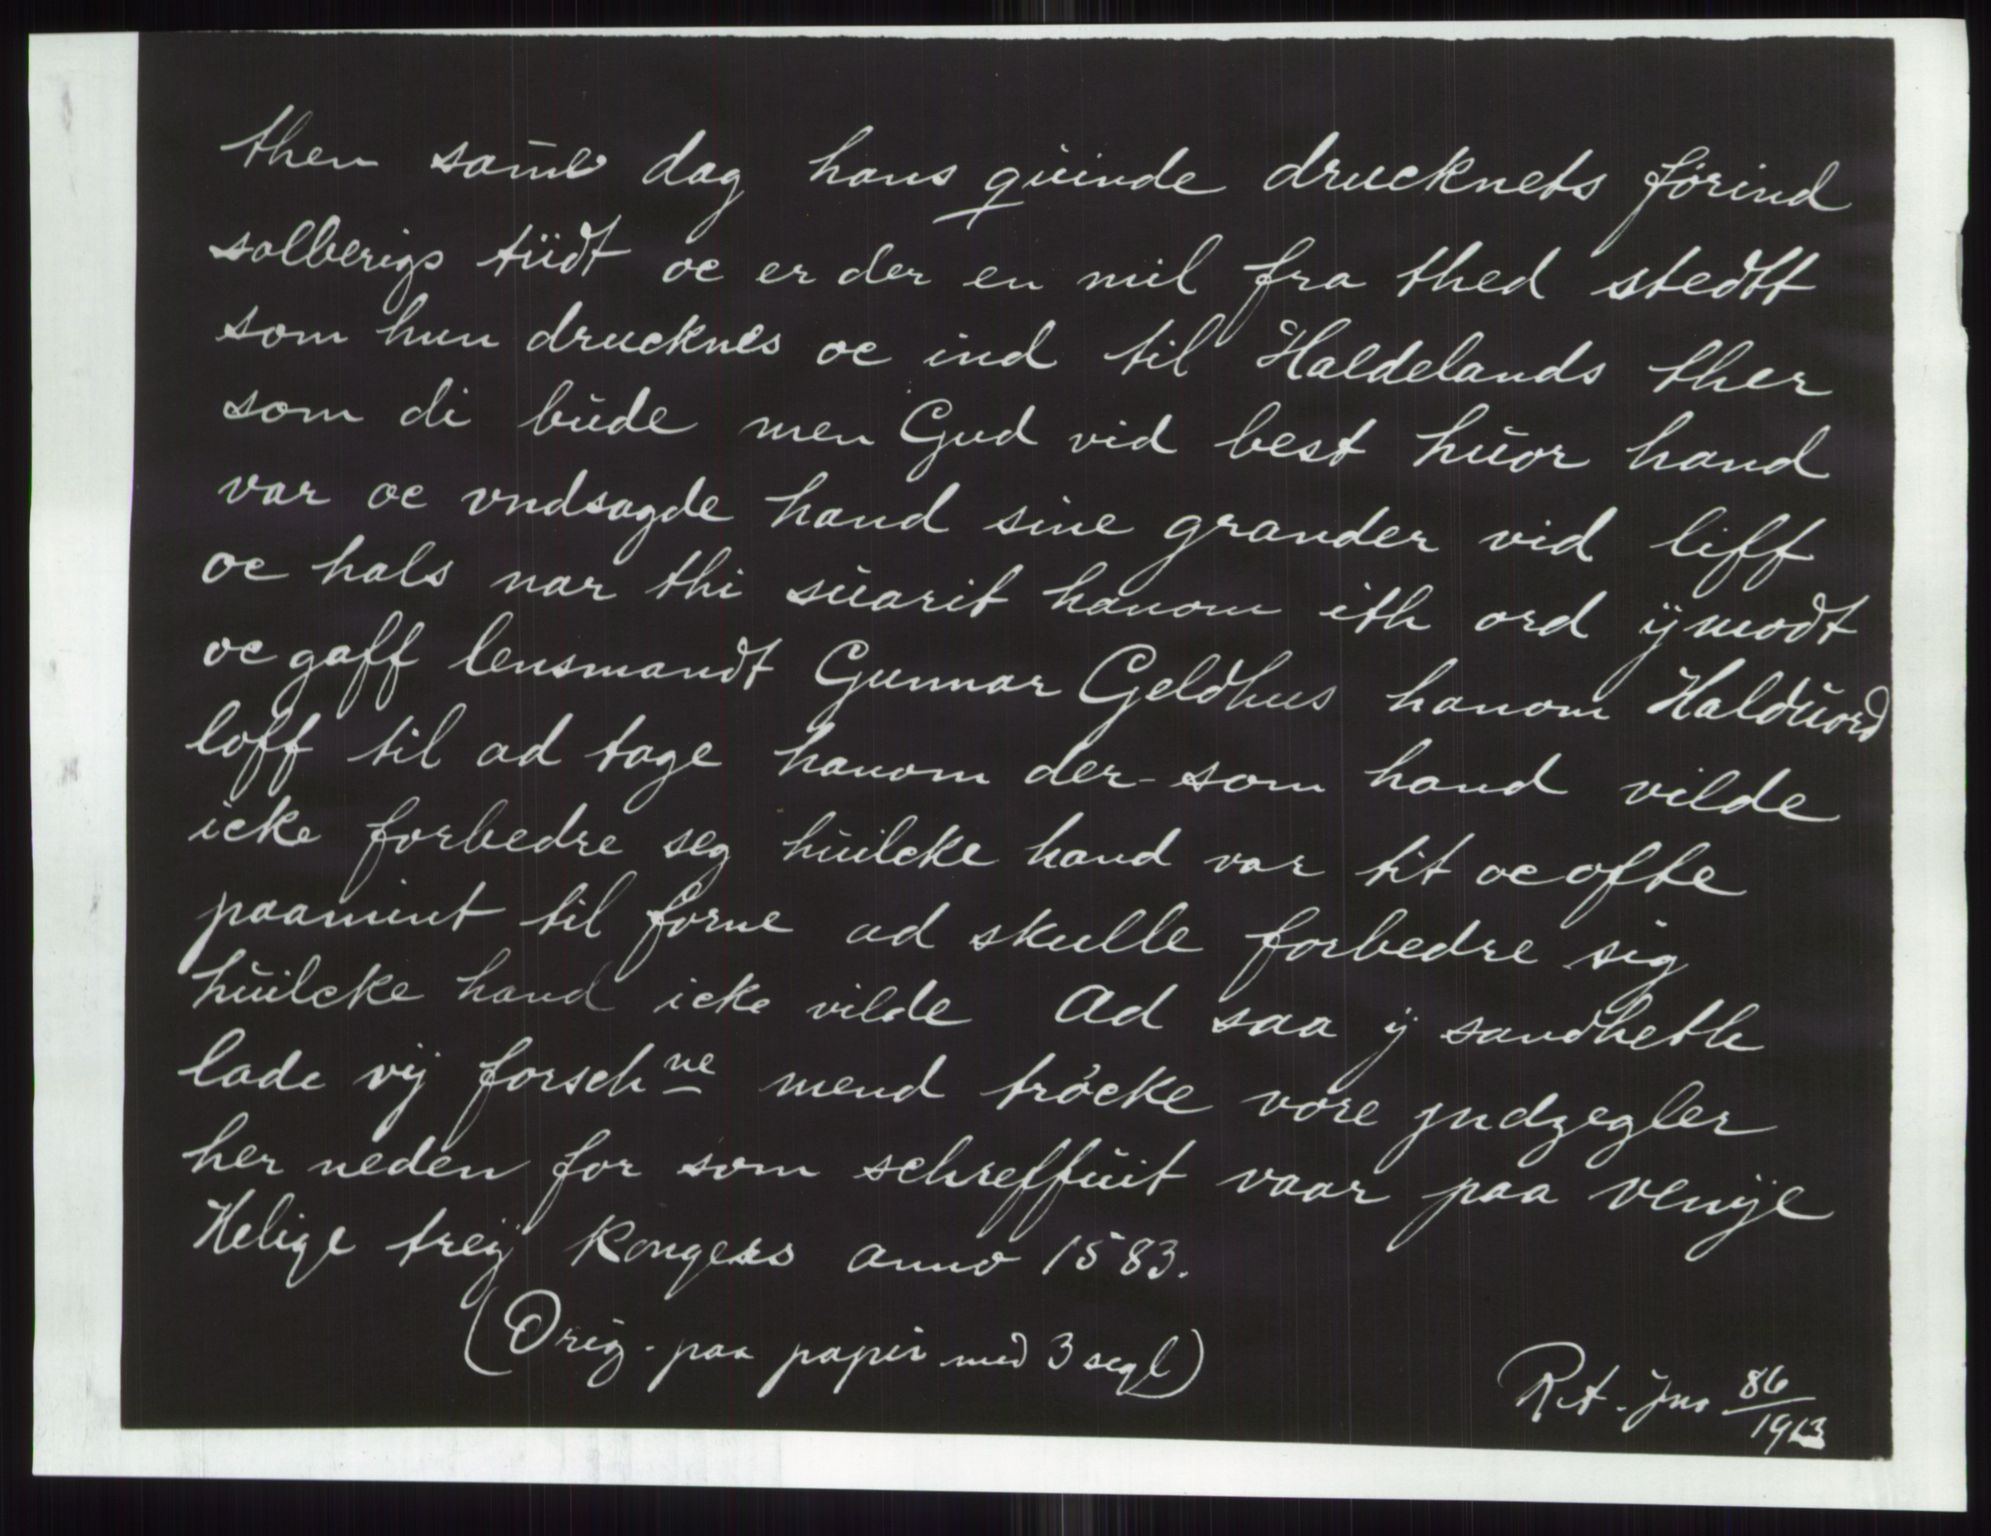 then same dag hans quinde drucknets førind
solberigs tüdt oc er der en mil fra thed stedtt
som hun drucknes oc ind til Haldelands ther
som di bude men Gud vid best huor hand
var oc vndsagde hand sine grander vid liff
oc hals nar thi suarit hanom ith ord ÿmodt
oc gaff lensmandt Gunnar Geldhus hanom Halduord
loff til ad tage hanom der-som hand vilde
icke forbedre seg huilcke hand var tit oc ofte
paamint til forne ad skulle forbedre sig
huilcke hand icke vilde Ad saa ÿ sandheth
lade vij forsch ne mend trócke vore jndzegler
her neden for som schreffuit vaar paa venÿe
Helige treÿ Kongers anno 1583.
(Orig. paa papir med 3 segl)
R.A. jno 86/1913